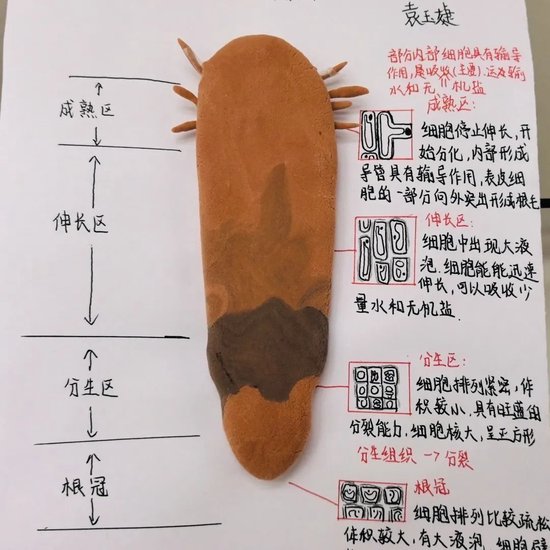 袁玉婕
部分内部细胞具有输导
作用,是吸收(主要).运及输别
水和无机盐
成熟区:
细胞停止伸长,开
始分化,内部形成
导管具有输导作用,表皮细
胞的一部分向外突出形成根毛
伸长区:
细胞中出现大液
泡.细胞能能迅速
伸长,可以吸收少
量水和无机盐.
分生区:
细胞排列紧密,体
积较小,具有旺盛的
分裂能力,细胞核大,呈正方形
分生组织→分裂
根冠
细胞排列比较疏松
体积较大,有大液泡.细胞壁
成熟区
伸长区
分生区
根冠